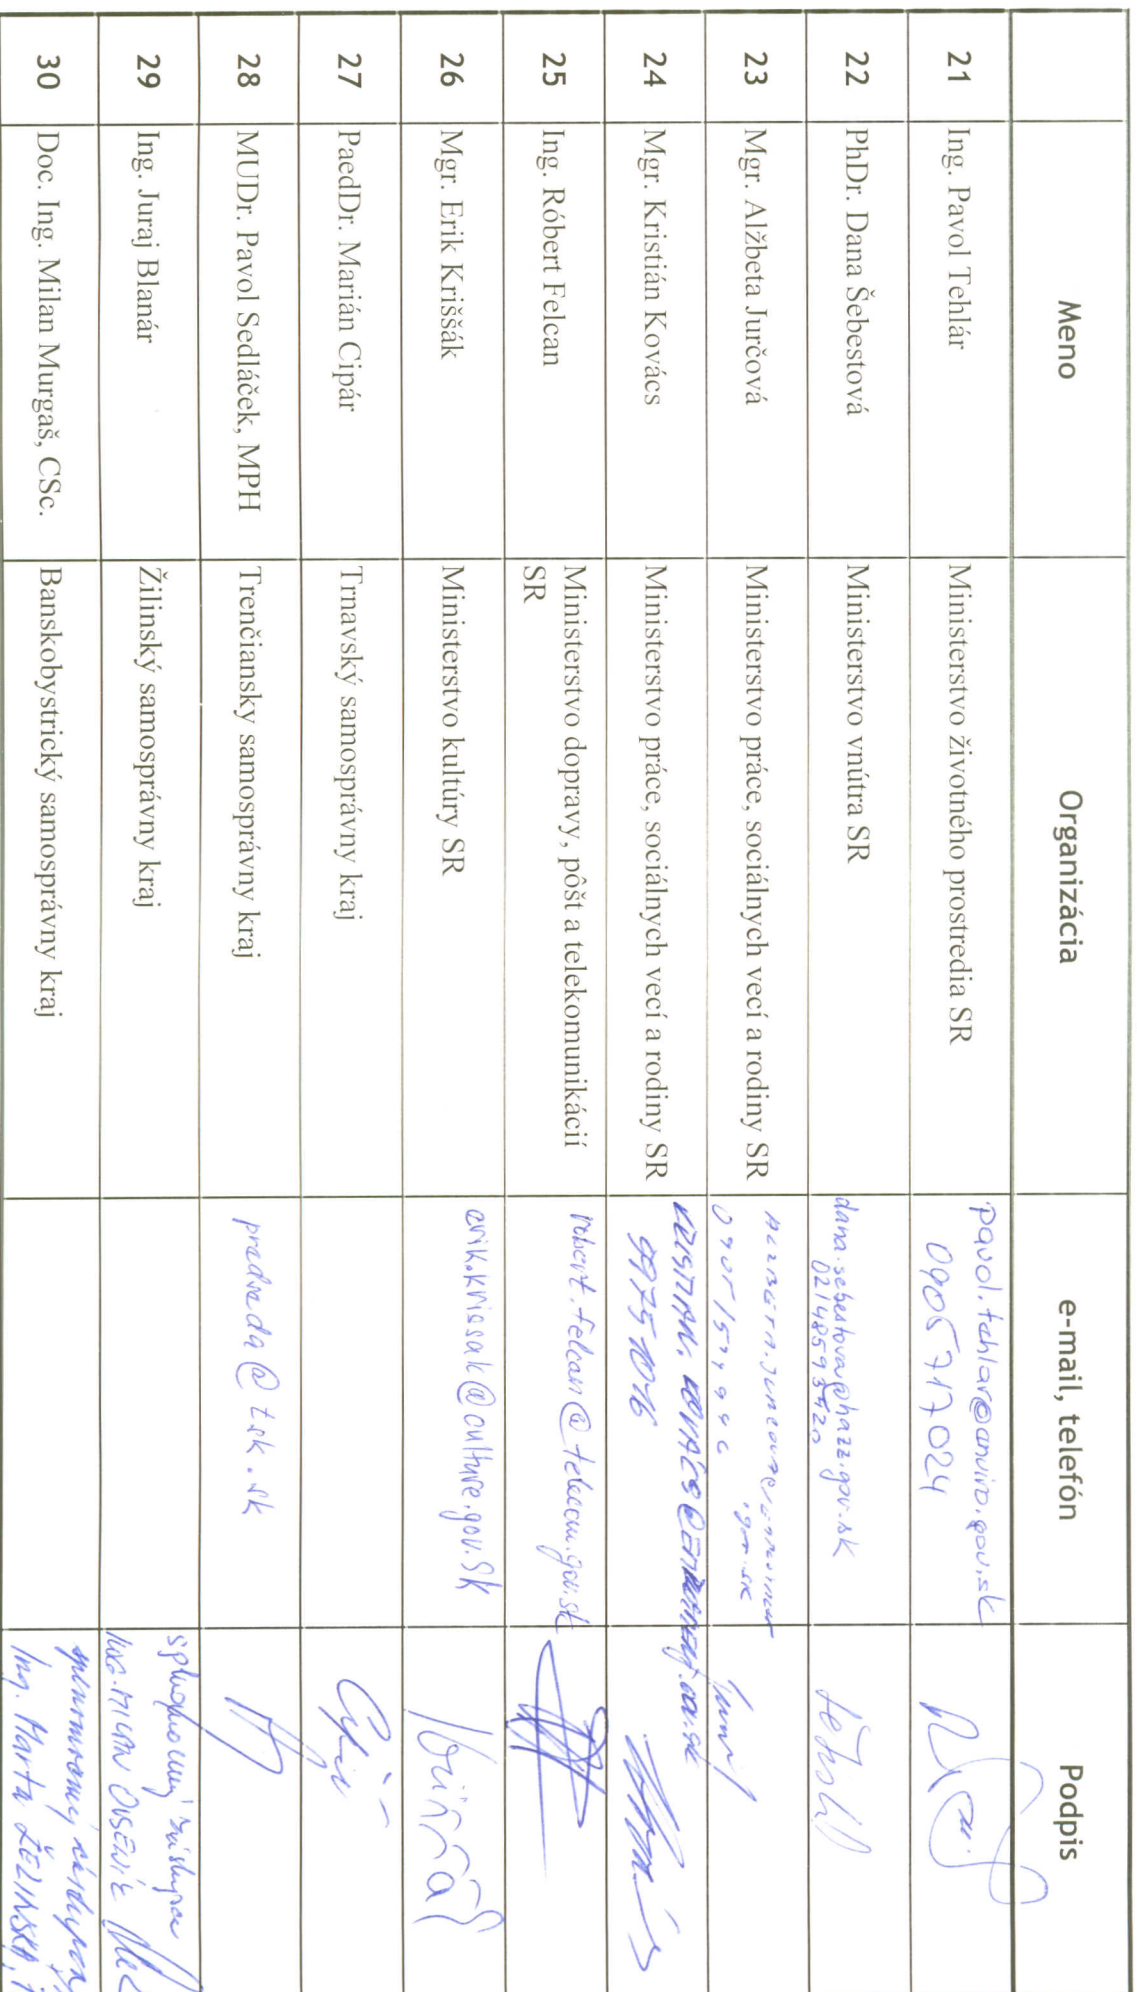 Meno Organizácia e-mail, telefón Podpis
21 Ing. Pavol Tehlár Ministerstvo životného prostredia SR pavol.tehlar@enviro.gov.sk
0905 717 024
22 PhDr. Dana Šebestová Ministerstvo vnútra SR dana.sebestova@hazz.gov.sk
23 Mgr. Alžbeta Jurčová Ministerstvo práce, sociálnych vecí a rodiny SR
24 Mgr. Kristián Kovács Ministerstvo práce, sociálnych vecí a rodiny SR
25 Ing. Róbert Felcan Ministerstvo dopravy, pôšt a telekomunikácií robert.felcan@telecom.gov.sk
SR
26 Mgr. Erik Kriššák Ministerstvo kultúry SR erik.krissak@culture.gov.sk
27 PaedDr. Marián Cipár Trnavský samosprávny kraj
28 MUDr. Pavol Sedláček, MPH Trenčiansky samosprávny kraj predseda@tsk.sk
29 Ing. Juraj Blanár Žilinský samosprávny kraj splnomocnený zástupca
Ing. MILAN
30 Doc. Ing. Milan Murgaš, CSc. Banskobystrický samosprávny kraj splnomocnený zástupca
Ing. Marta ŽELINSKÁ,